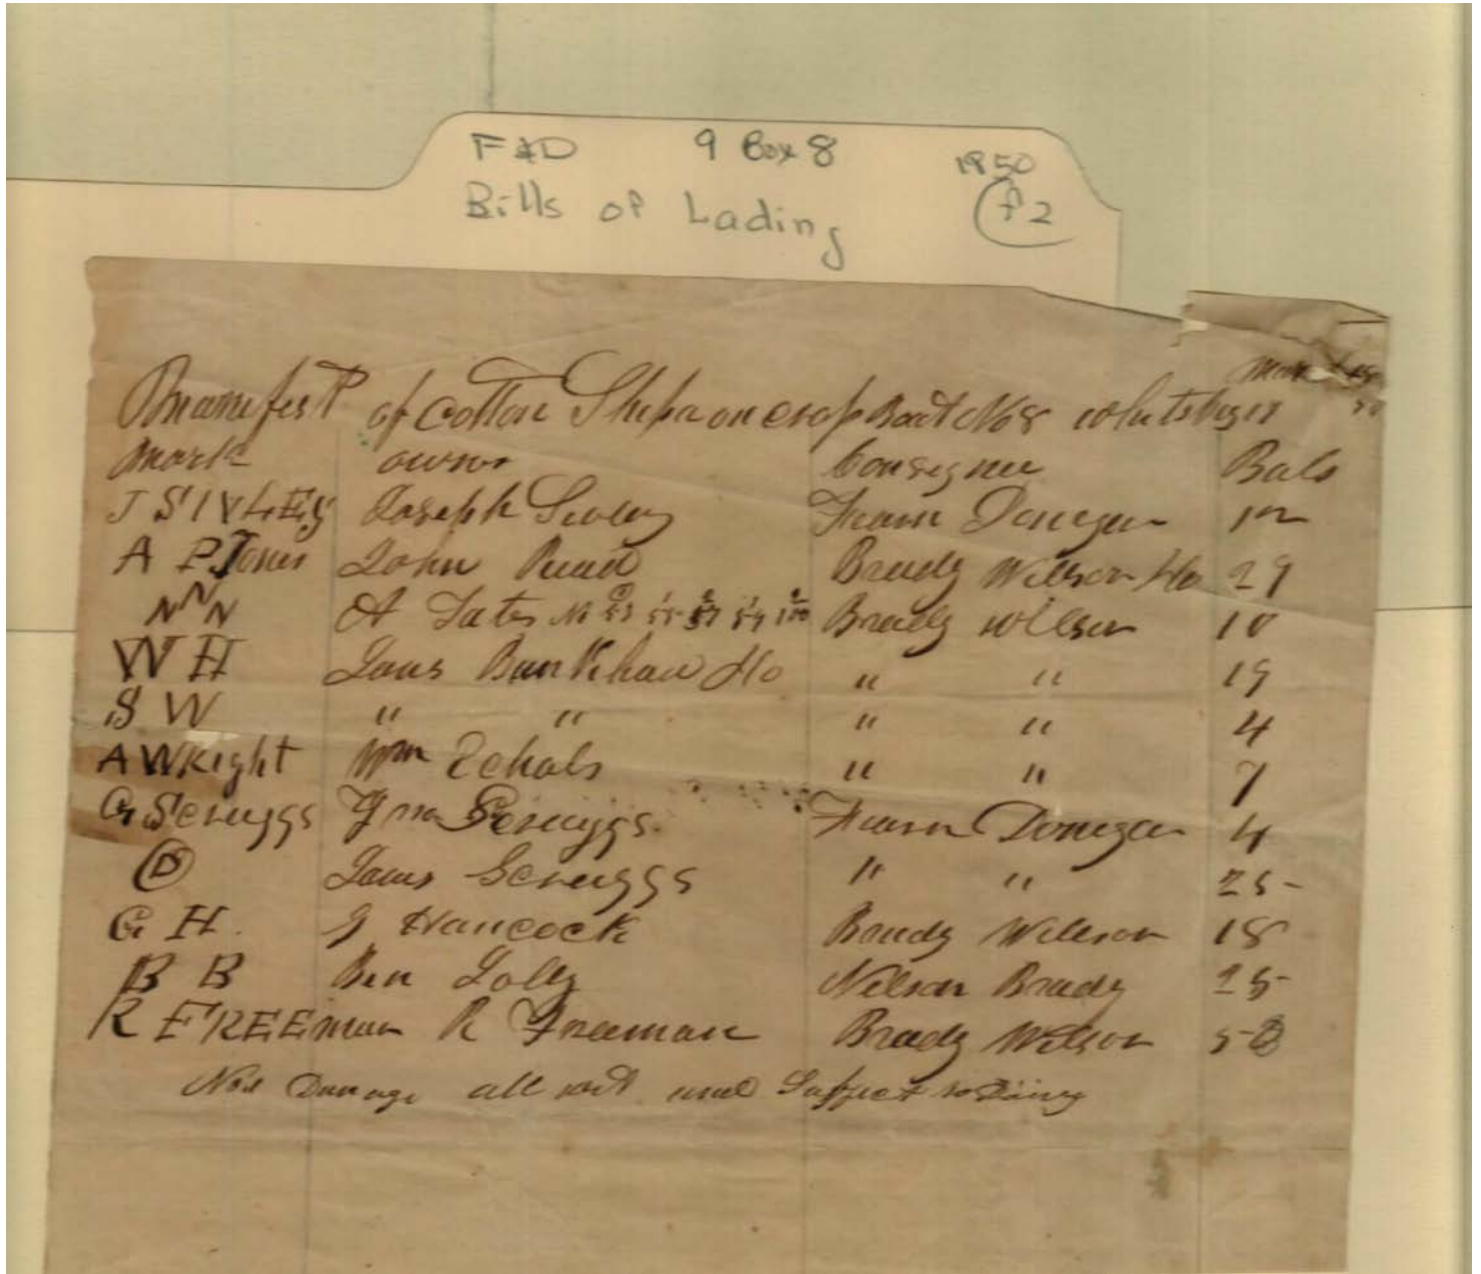 F&D 9 Box 8 1850
Bills of Lading f2
Manifest of Cotton Shipd on crop Boat No 8
Mark owner Consignee Bals
J SIVLEY Joseph Sivley Fearn Donegan 12
A P Jones John Read Brady Wilson &Co 29
NNN A Yates No 53 55 57 59 100 Brady Wilson 10
W H Jams Bankhead &Co " " 19
S W " " " " 4
A WRight Wm Echals " " 7
G Scruggs Scruggs Fearn Donegan 4
D Jams Scruggs " " 25
G H. J Hancock Brady Wilson 18
B B Ben Jolly Nelson Brady 25
R FREEman R Freeman Brady Wilson 58
Damage all wet and